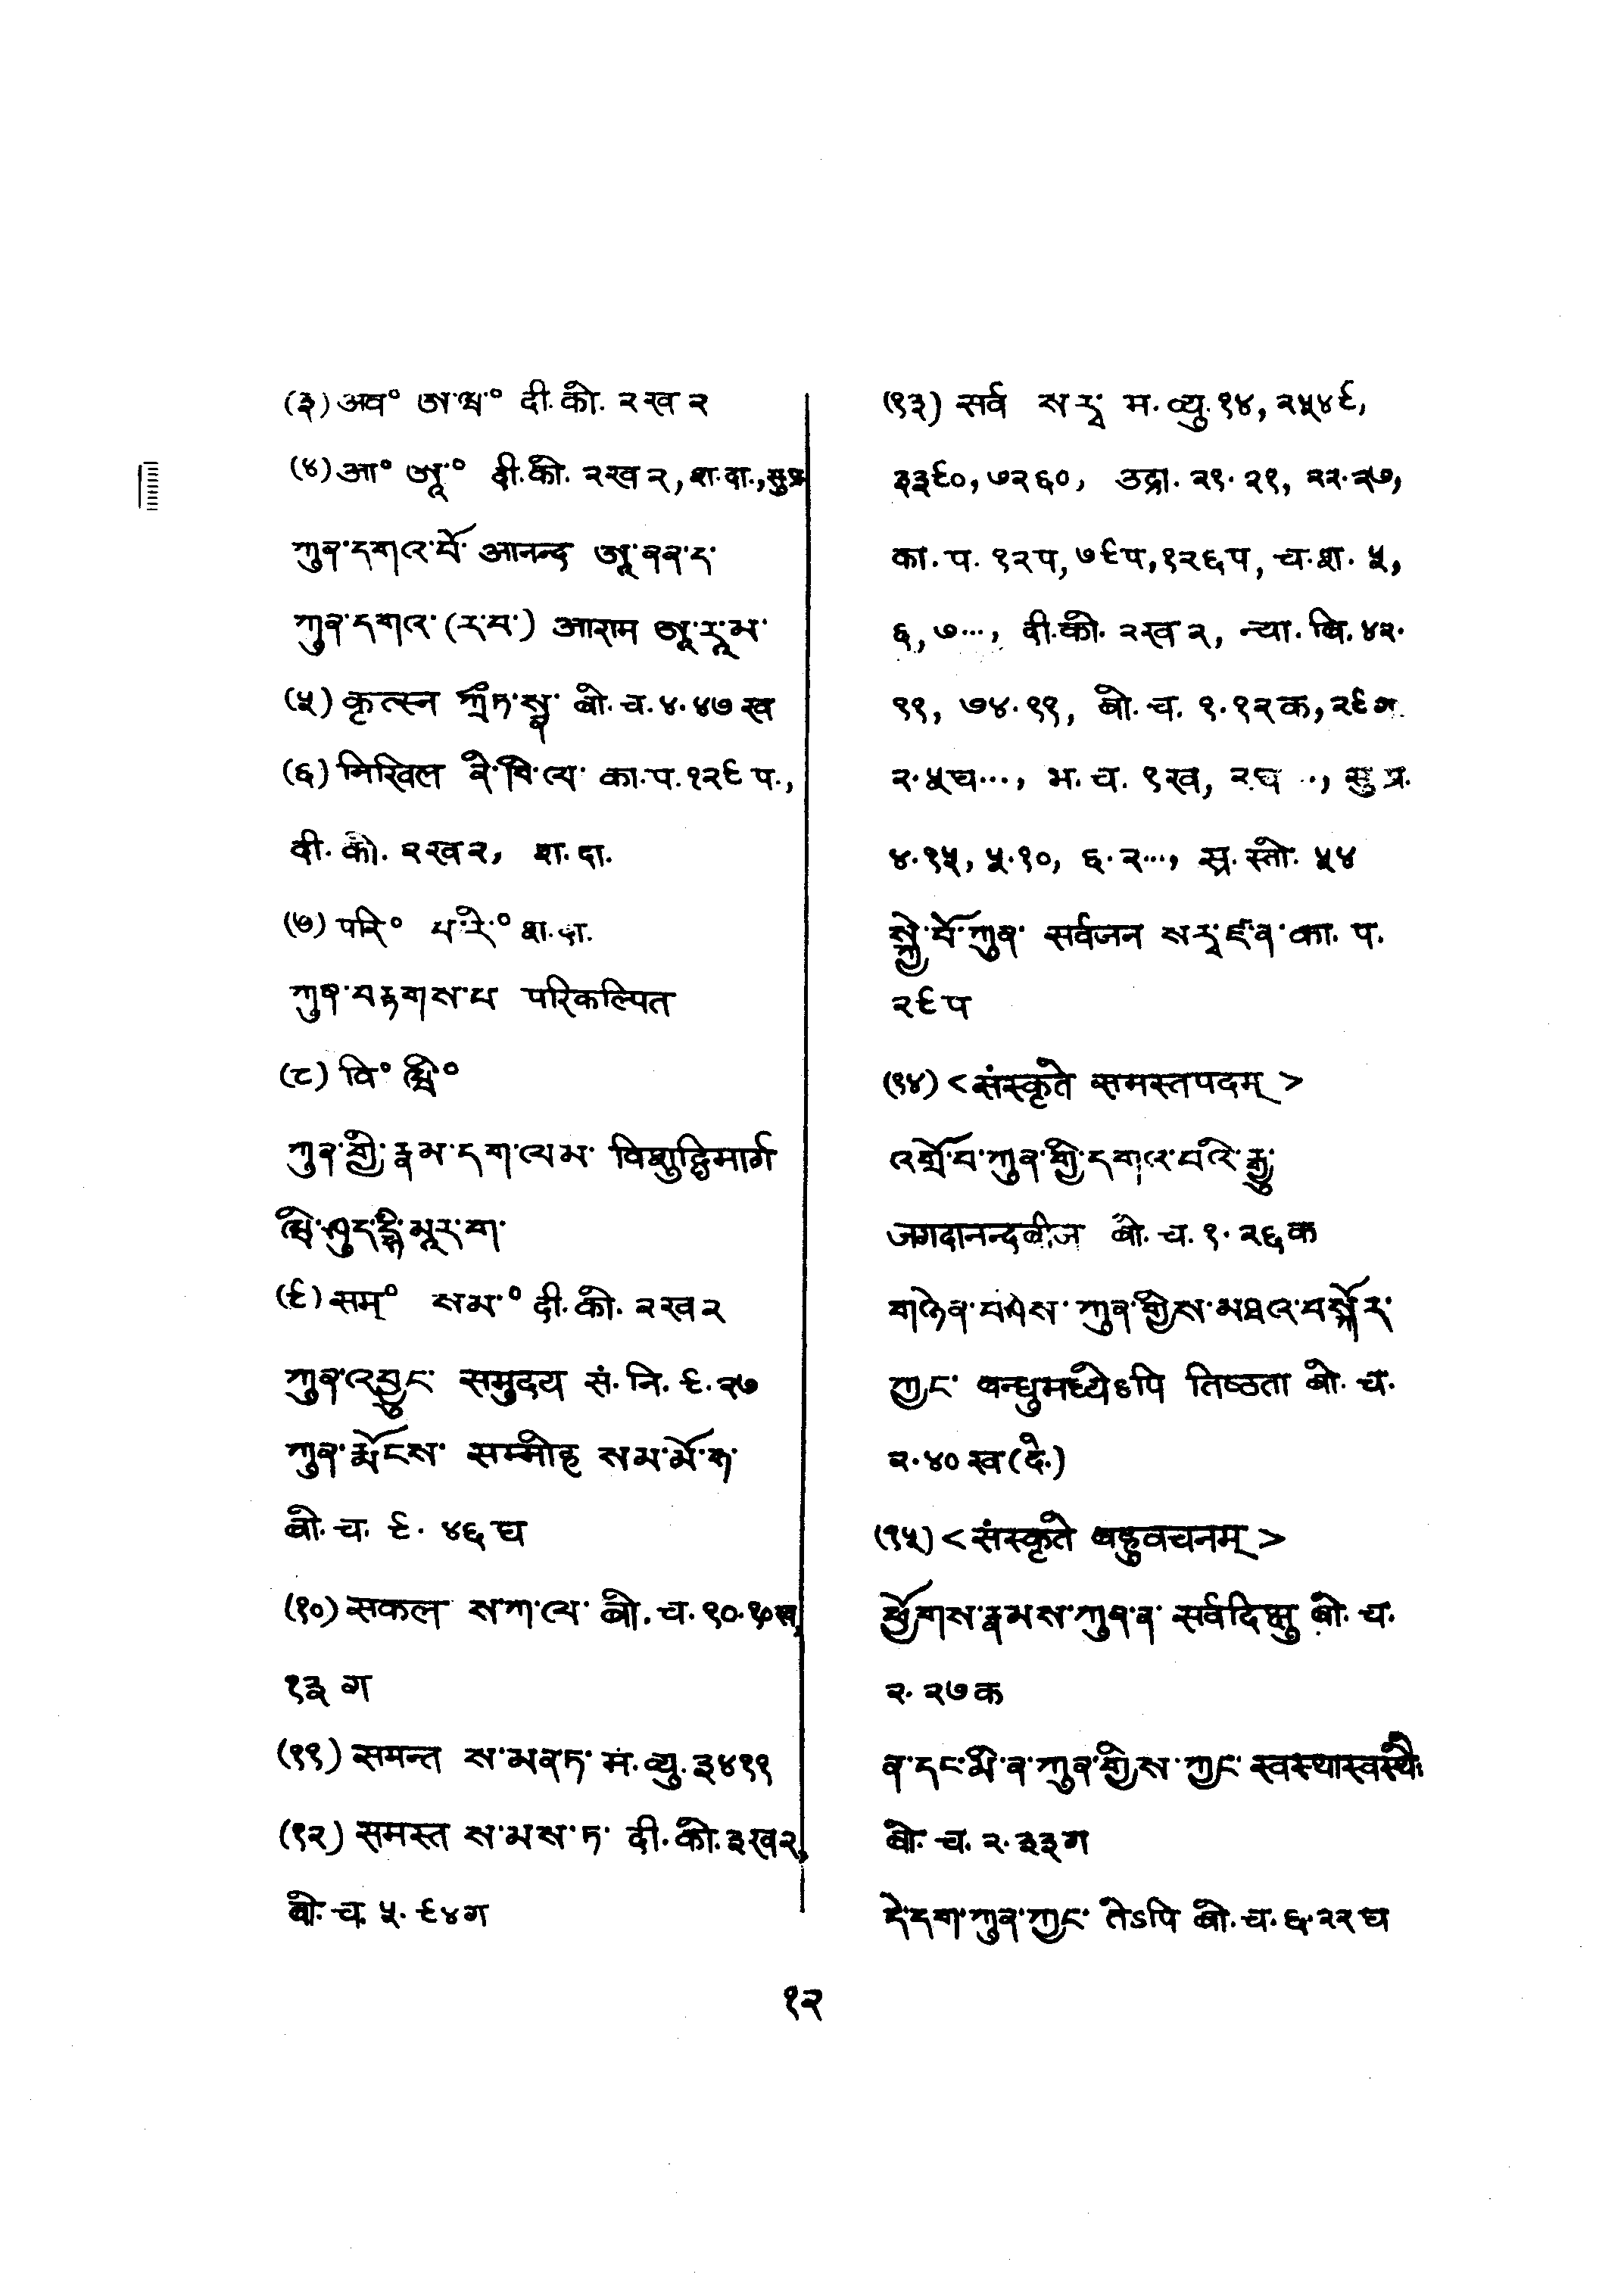 (३) अव° ཨ་ཝ° दी. को. २ ख २
(४) आ° ཨཱ་° दी. को. २ ख २, श. दा., सु प्र
ཀུན་དགའ་བོ་ आनन्द ཨཱ་ནན་ད་
ཀུན་དགའ་(ར་བ་) आराम ཨཱ་རཱ་མ་
(५) कृत्स्न ཀྲྀཏ་སྣ་ बो. च. ४. ४७ ख
(६) निखिल ནི་ཁི་ལ་ का. प. १२९ प.,
दी. को. २ ख २, श. दा.
(७) परि° པ་རི་° श. दा.
ཀུན་བརྟགས་པ परिकल्पित
(८) वि° ཝི་°
ཀུན་གྱི་རྣམ་དག་ལམ་ विशुद्धिमार्ग
ཝི་ཤུད་དྷི་མཱར་ག་
(९) सम्° སམ་° दी. को. २ ख २
ཀུན་འབྱུང་ समुदय सं. नि. ९. २७
ཀུན་རྨོངས་ सम्मोह སམ་མོ་ཧ་
बो. च. ९. ४६ घ
(१०) सकल ས་ཀ་ལ་ बो. च. १०.
१३ ग
(११) समन्त ས་མན་ཏ་ म. व्यु. ३४११
(१२) समस्त ས་མས་ཏ་ दी. को. ३ ख २,
बो. च. ५. ९४ ग
(१३) सर्व སརྦ म. व्यु. १४, २५४९,
३३९०, ७२६०, उद्रा. २१. २१, २२. २७,
का. प. १२ प, ७९ प, १२६ प, च. श. ५,
६, ७..., दी. को. २ ख २, न्या. बि. ४२.
११, ७४. ११, बो. च. १. १२ क, २९ ग
२. ५ घ..., भ. च. १ ख, २ घ .., सु प्र.
४. १५, ५. १०, ६. २..., स्र. स्तो. ५४
སྐྱེ་བོ་ཀུན་ सर्वजन སརྦ་ཛ་ན་ का. प.
२९ प
(१४) < संस्कृते समस्तपदम् >
འགྲོ་བ་ཀུན་གྱི་དགའ་བའི་རྒྱུ་
जगदानन्दबीज बो. च. १. २६ क
གཉེན་བཤེས་ ཀུན་གྱིས་མཐའ་བསྐོར་
ཀྱང་ बन्धुमध्येऽपि तिष्ठता बो. च.
२. ४० ख (दे.)
(१५) < संस्कृते बहुवचनम् >
ཕྱོགས་རྣམས་ཀུན་ན་ सर्वदिक्षु बो. च.
२. २७ क
ན་དང་མི་ན་ཀུན་གྱིས་ཀྱང་ स्वस्थास्वस्थैः
बो. च. २. ३३ ग
དེ་དག་ཀུན་ཀྱང་ तेऽपि बो. च. ६. २२ घ
१२